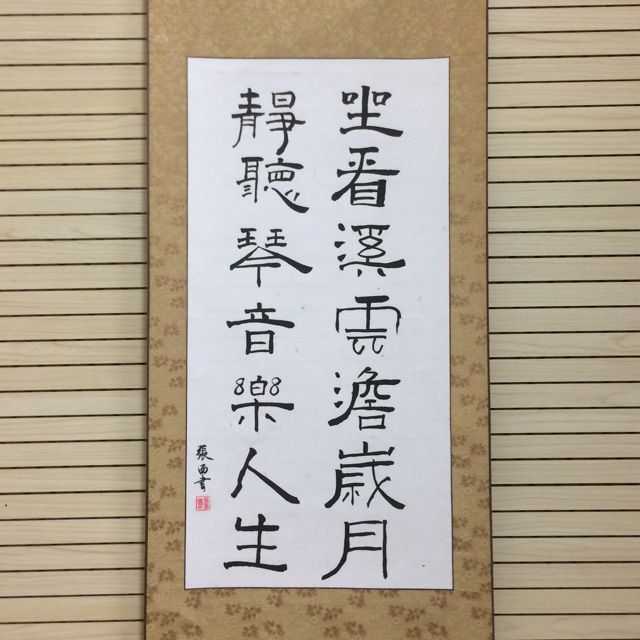 坐看溪雲澹歲月
靜聽琴音樂人生
張西書